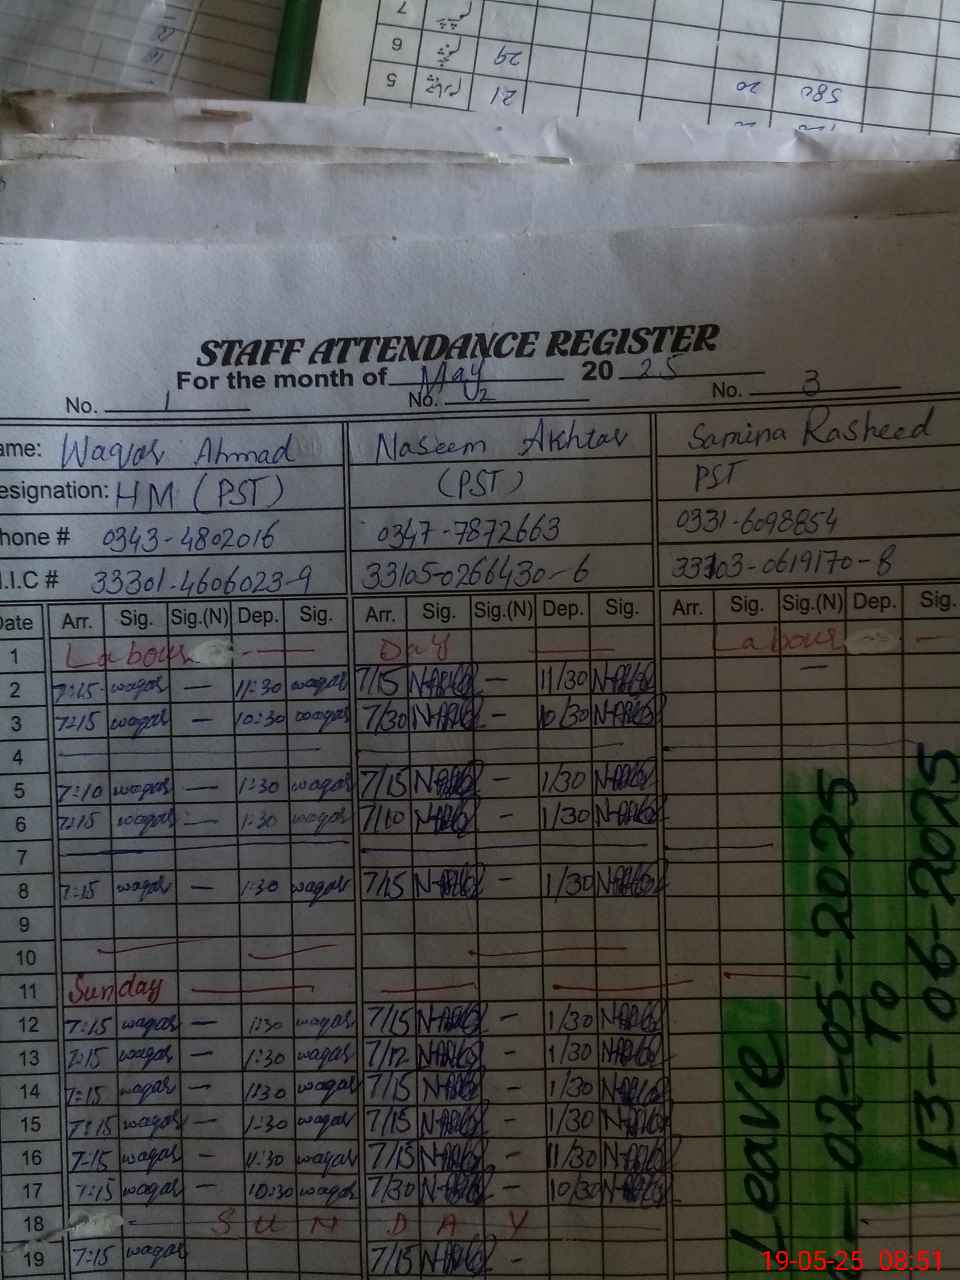 7
6 29
5 21 20 580
STAFF ATTENDANCE REGISTER
For the month of May 20 25
No. 1 No. 2 No. 3
ame: Waqar Ahmad Naseem Akhtar Samina Rasheed
esignation: HM (PST) (PST) PST
hone # 0343-4802016 0347-7872663 0331-6098854
.I.C # 33301-4606023-9 33105-0266430-6 33103-0619170-8
Date Arr. Sig. Sig.(N) Dep. Sig. Arr. Sig. Sig.(N) Dep. Sig. Arr. Sig. Sig.(N) Dep. Sig.
1 Labour — Day — Labour —
2 7:15 waqar — 11:30 waqar 7/15 — 11/30 —
3 7:15 waqar — 10:30 waqar 7/30 — 10/30
4
5 7:10 waqar — 1:30 waqar 7/15 — 1/30
6 7:15 waqar — 1:30 waqar 7/10 — 1/30
7
8 7:15 waqar — 1:30 waqar 7/15 — 1/30
9
10
11 Sunday
12 7:15 waqar — 1:30 waqar 7/15 — 1/30
13 7:15 waqar — 1:30 waqar 7/12 — 1/30
14 7:15 waqar — 1:30 waqar 7/15 — 1/30
15 7:15 waqar — 1:30 waqar 7/15 — 1/30
16 7:15 waqar — 11:30 waqar 7/15 — 11/30
17 7:15 waqar — 10:30 waqar 7/30 — 10/30
18 S U N D A Y
19 7:15 waqar 7/15 —
Leave
02-05-2025
To
13-06-2025
19-05-25 08:51